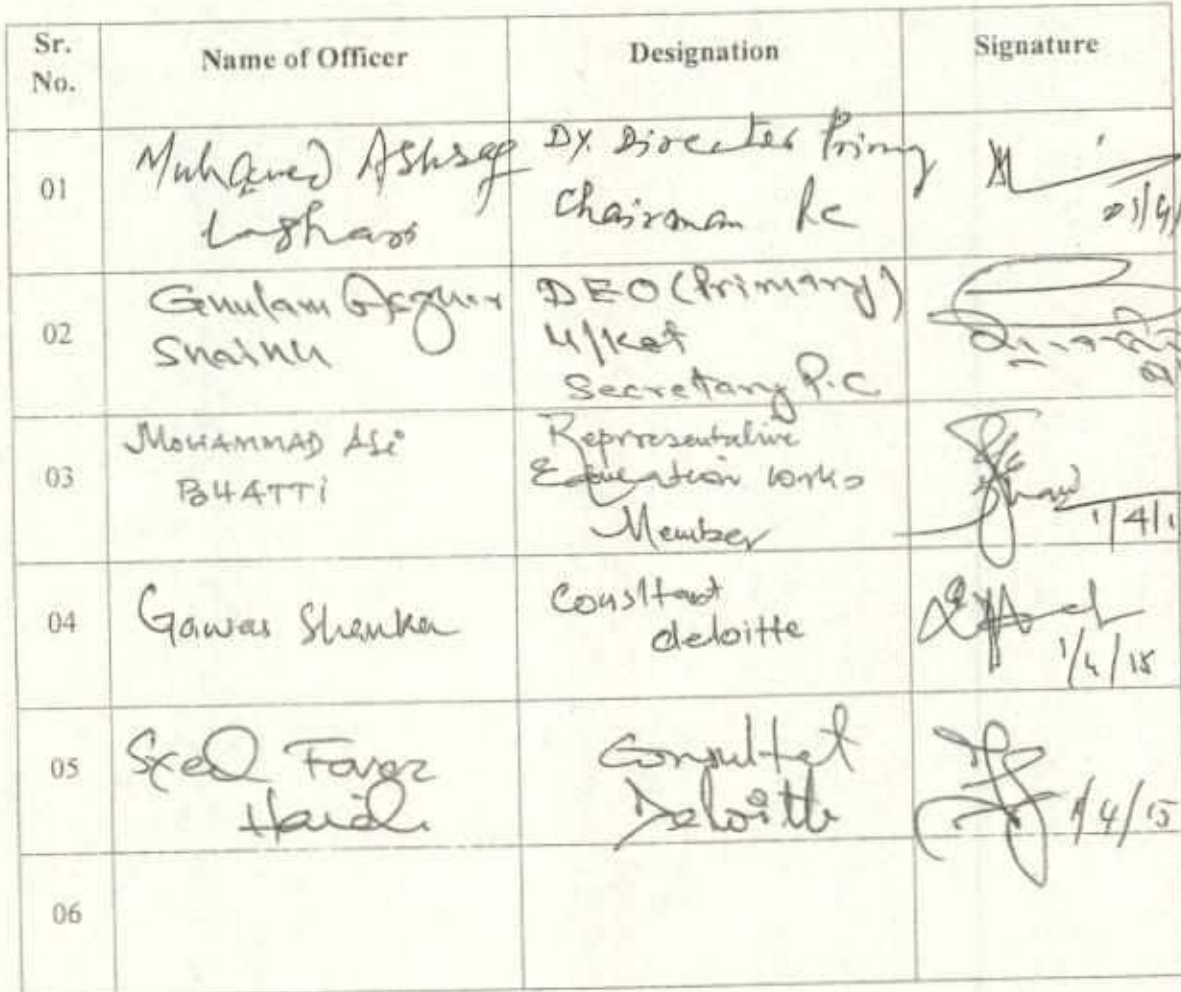 Sr. No.
Name of Officer
Designation
Signature
01
Muhamed Ashraf
Laghari
Dy. Director Primy
Chairman Pc
02
Ghulam Asghar
Shaikh
DEO (Primary)
U/Kot
Secretary P.C
03
MOHAMMAD ALi
BHATTi
Representative
Education works
Member
1/4/1
04
Gawri Shanker
Consltant
deloitte
1/4/15
05
Syed Faraz
Haidr
Consultet
Deloitte
1/4/15
06